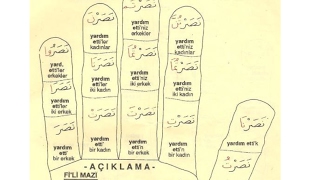 نَصَرُوا
yard.
etti'ler
erkekler
نَصَرَا
yardım
etti'ler
iki erkek
نَصَرَ
yardım
etti'
bir erkek
نَصَرْنَ
yardım
etti'ler
kadınlar
نَصَرَتَا
yardım
etti'ler
iki kadın
نَصَرَتْ
yardım
etti'
bir kadın
yardım
etti'niz
erkekler
نَصَرْتُمَا
yardım
etti'niz
iki erkek
نَصَرْتَ
yardım
etti'n
bir erkek
نَصَرْتُنَّ
yardım
etti'niz
kadınlar
نَصَرْتُمَا
yardım
etti'niz
iki kadın
نَصَرْتِ
yardım
etti'n
bir kadın
نَصَرْنَا
yardım etti'k
نَصَرْتُ
- AÇIKLAMA -
Fİ'Lİ MAZİ